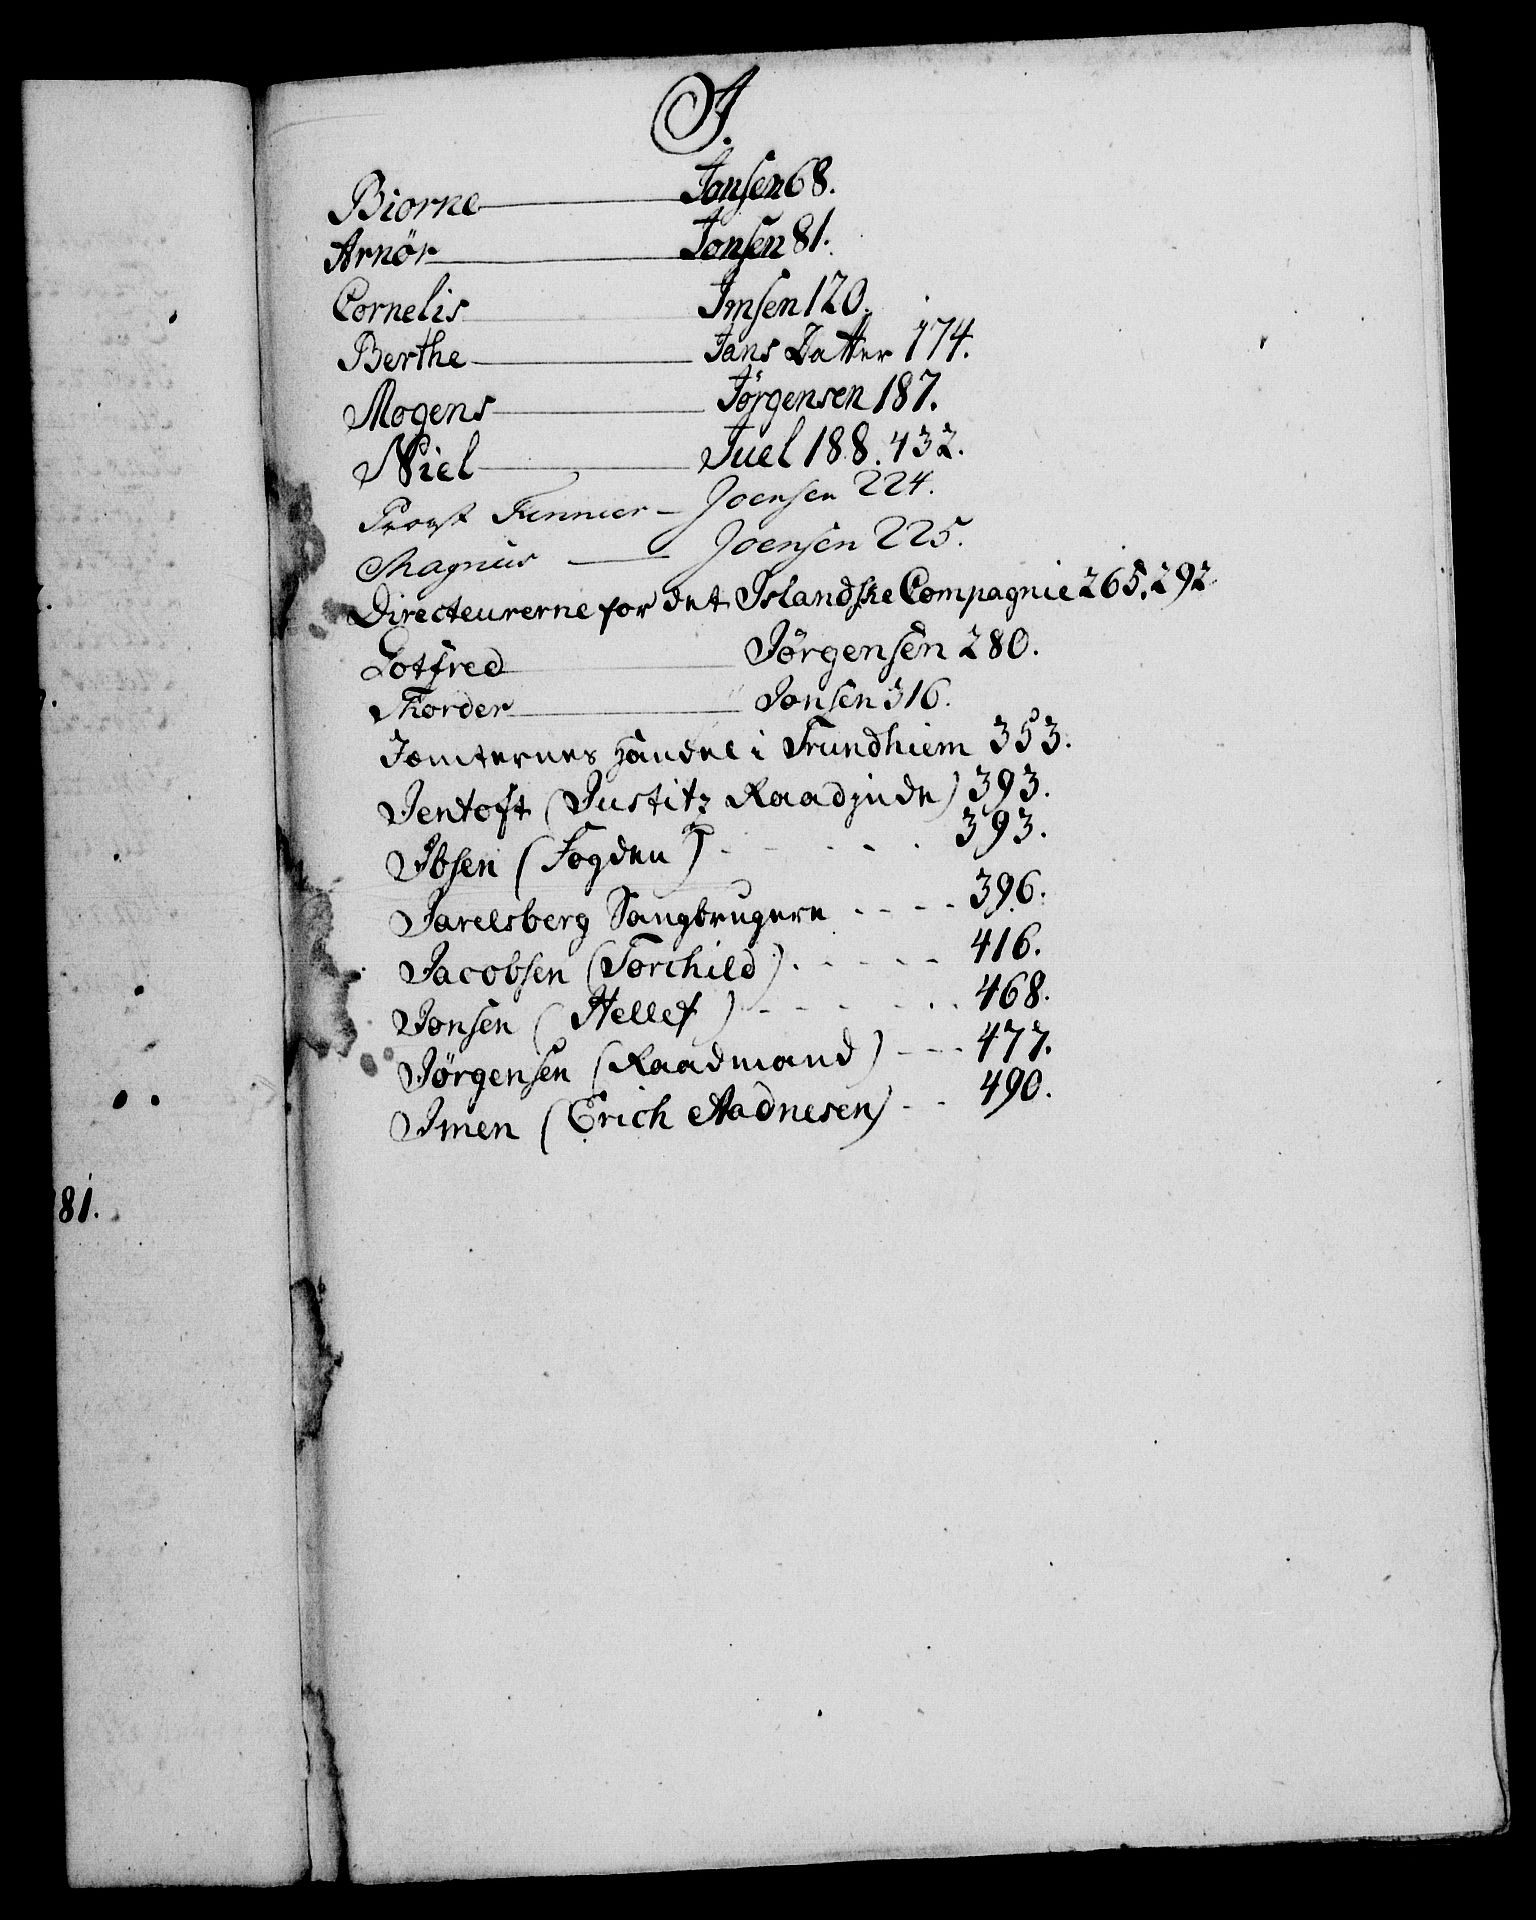 J.
Biorne Jonsen 68.
Arnør Jonsen 81.
Cornelis Imsen 120.
Berthe Jans Datter 174.
Mogens Jørgensen 187.
Niel Juel 188. 432.
Provst Finnur Joensen 224.
Magnus Joensen 225.
Directeurerne for det Islandske Compagnie 265. 292
Gotfred Jørgensen 280.
Thorder Jonsen 316.
Jemternes Handel i Trundhiem 353.
Jentoft (Justitz Raad 393.
Ibsen (Fogden) 393.
Jarelsberg Saugbrugere 396.
Jacobsen (Torchild) 416.
Jonsen (Hellef) 468.
Jørgensen (Raadmand) 477.
Imen (Erich Aadnesen) 490.
81.